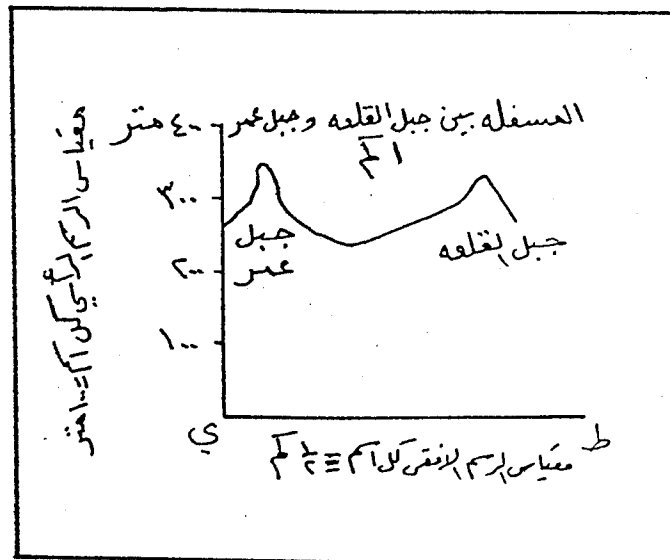 المسفله بين جبل القلعه وجبل عمر
١ كم
٤٠٠ متر
٣٠٠
٢٠٠
١٠٠
جبل
عمر
جبل القلعه
ي
ط
مقياس الرسم الرأسي كل ١سم ≡ ١٠٠ متر
مقياس الرسم الافقي كل ١سم ≡ ١/٢ كم